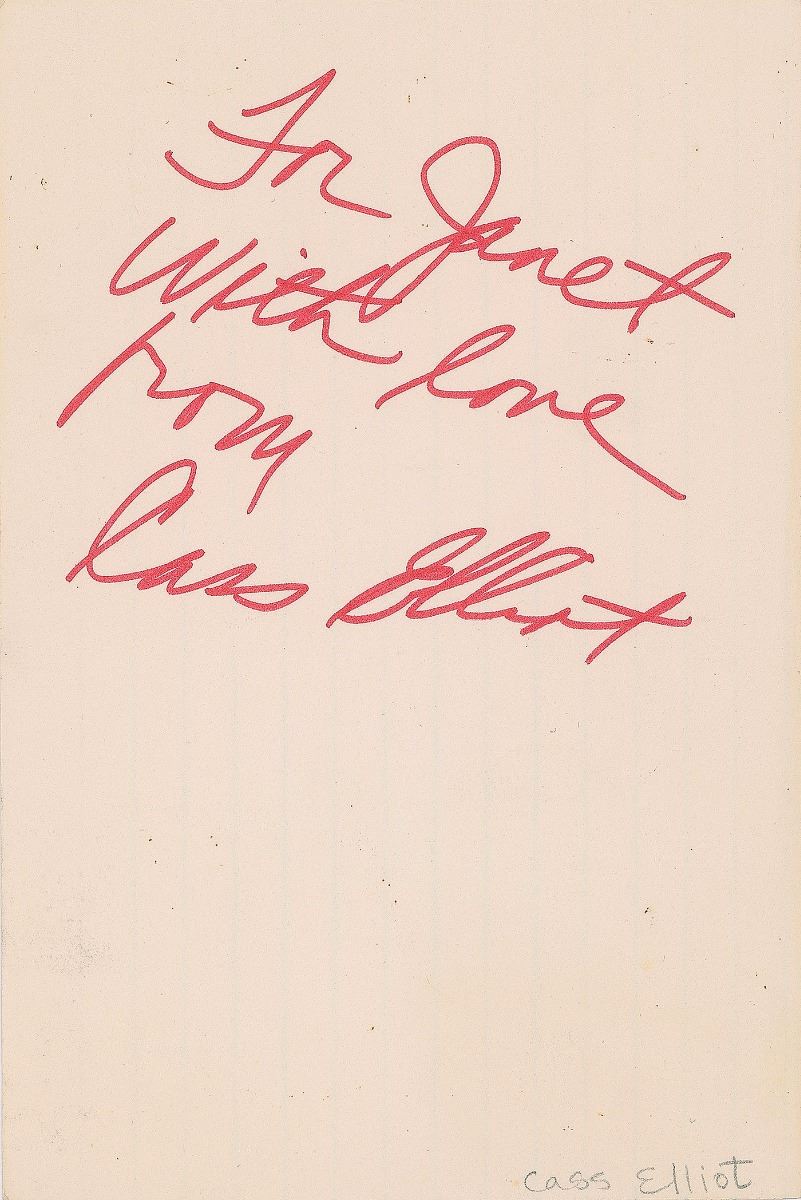 For Janet
With love
from
Cass Elliot
Cass Elliot